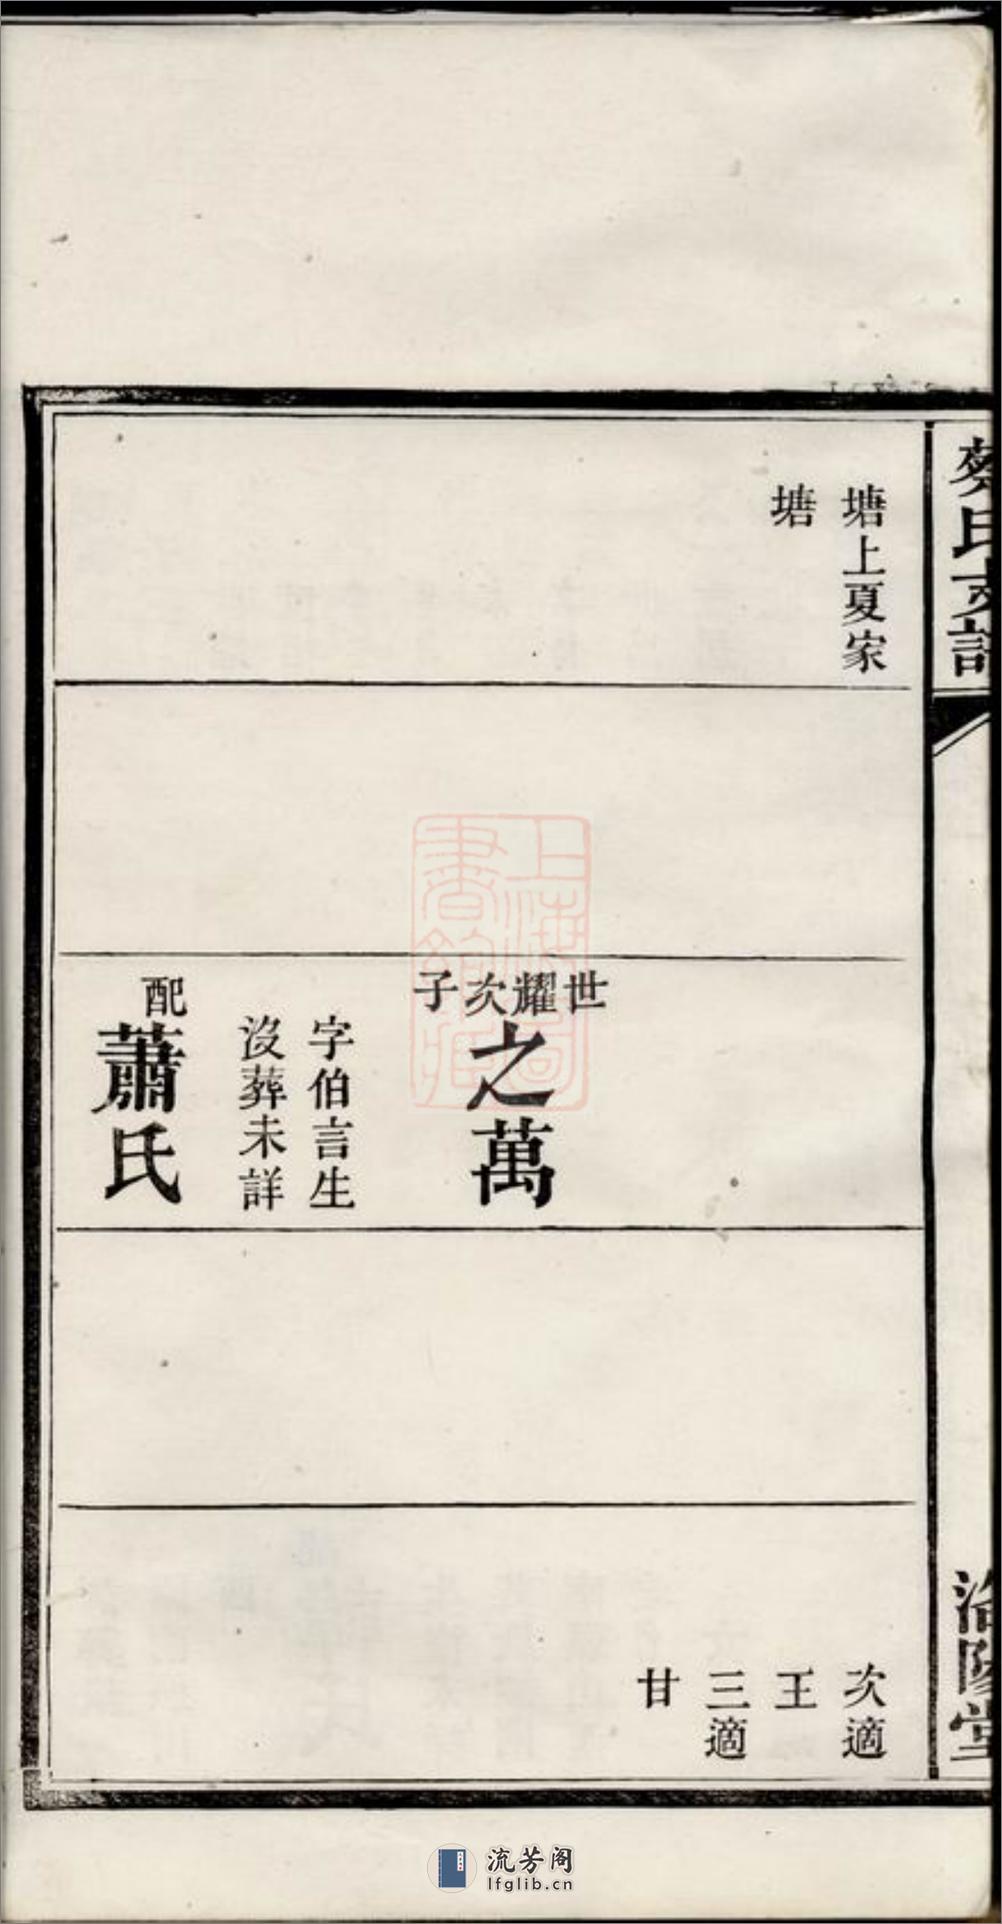 蔡氏支譜
濟陽堂
塘上夏家
塘
世耀次子
之萬
字伯言生
沒葬未詳
配
蕭氏
次適
王
三適
甘
上海圖書館藏
流芳阁
lfglib.cn